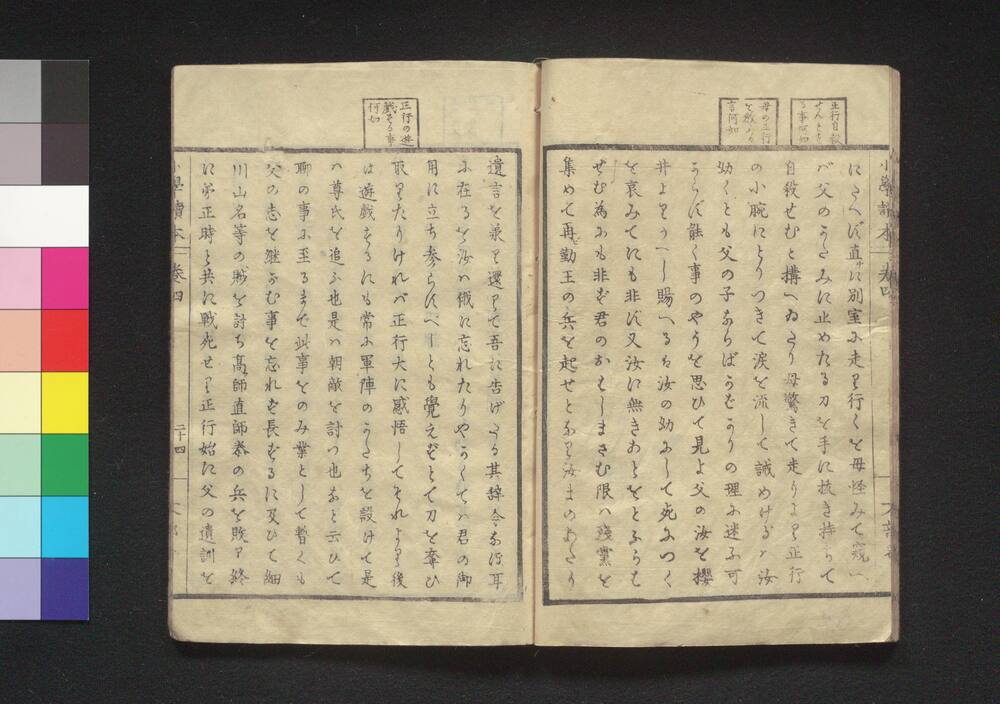 正行自殺
せんとす
る事何如
母の正行
を敎ふる
言何如
にたへず直に別室に走り行くを母怪みて窺へ
バ父のかたみに止めたる刀を手に抜き持ちて
自殺せむと構へゐたり母驚きて走りより正行
の小腕にとりつきて涙を流して誡めけるハ汝
幼くとも父の子ならばかばかりの理に迷ふ可
からず能く事のやうを思ひて見よ父の汝を櫻
井よりかへし賜へるハ汝の幼にして死につく
を哀みてにも非ず又汝に無きあとをとふらは
せむ為にも非ず君のおはしまさむ限ハ残黨を
集めて再勤王の兵を起せとなり汝まのあたり
正行の遊
戲する事
何如
遺言を承り還りて吾に告げたる其辞今なほ耳
に在るを汝ハ俄に忘れたりやかくてハ君の御
用に立ち参らすべしとも覺えずとて刀を奪ひ
取りたりけれバ正行大に感悟してそれより後
は遊戲するにも常に軍陣のかたちを設けて是
ハ尊氏を追ふ也是ハ朝敵を討つ也など云ひて
聊の事に至るまで此事をのみ業として暫くも
父の志を継がむ事を忘れず長ずるに及びて細
川山名等の賊を討ち高師直師泰の兵を敗り終
に弟正時と共に戦死せり正行始に父の遺訓を
小學讀本 卷四
二十四